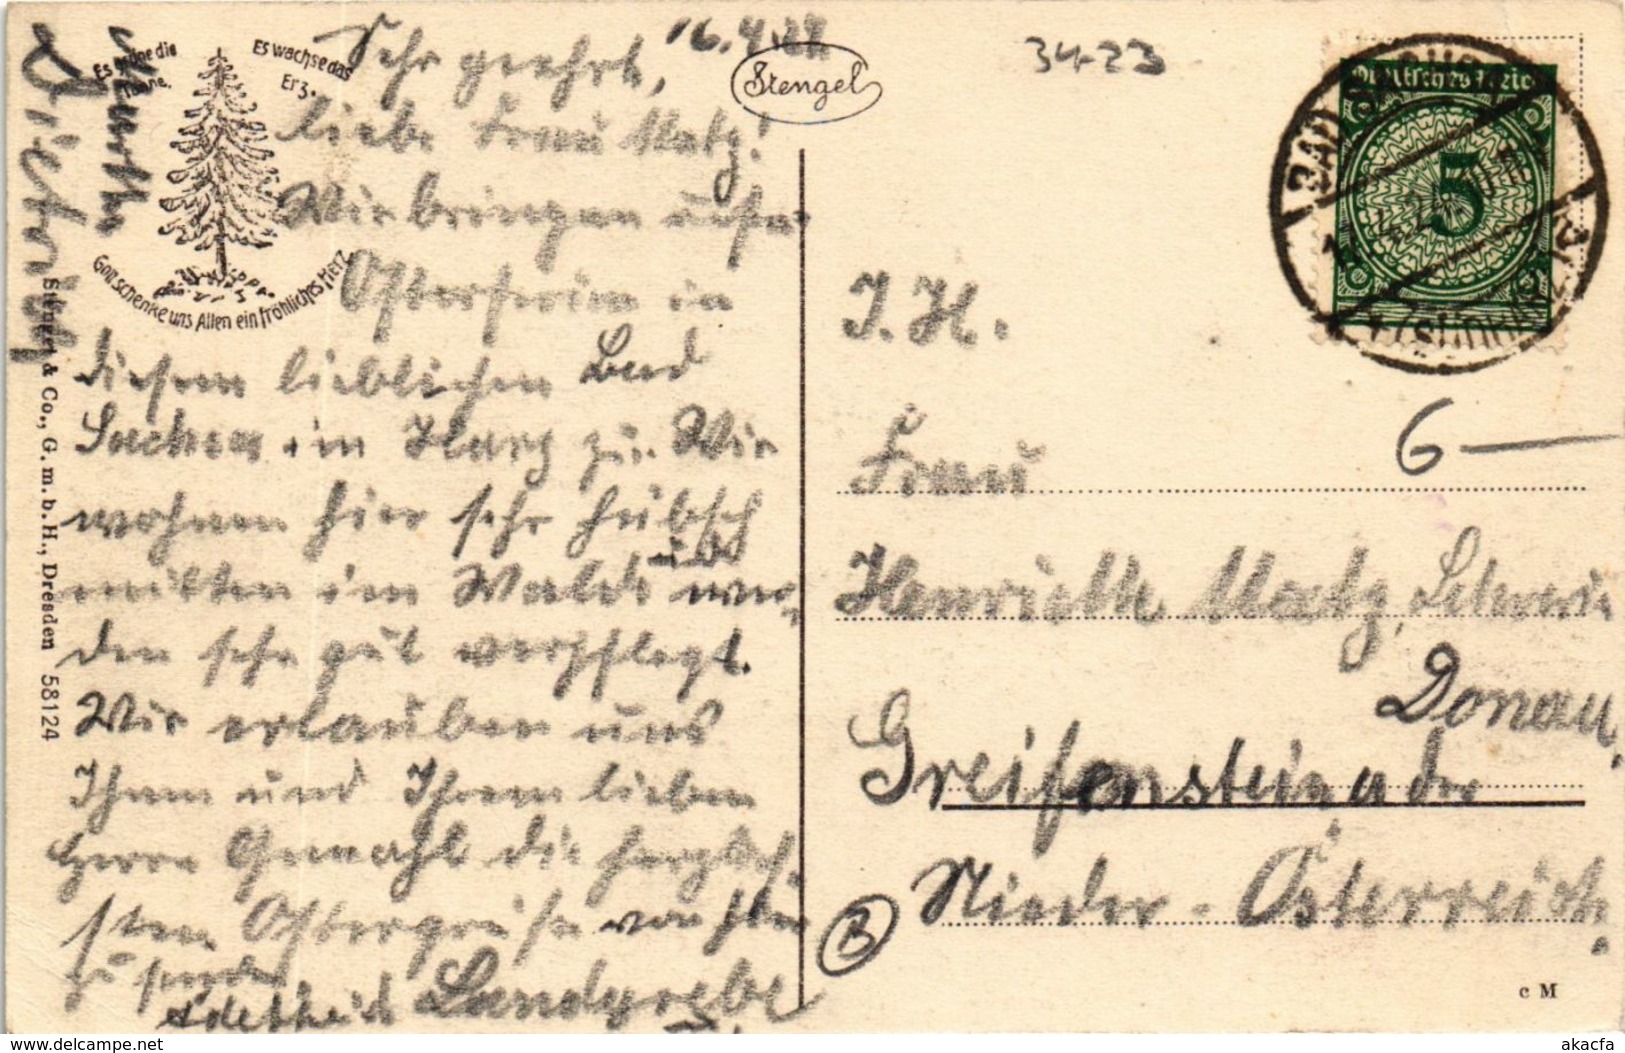 16.4.24
Sehr geehrte,
liebe Frau Matz!
Wir bringen unsere
Osterferien in
diesem lieblichen Bad
Sachsa im Harz zu. Wir
wohnen hier sehr hübsch
mitten im Walde und wer-
den sehr gut verpflegt.
Wir erlauben uns
Ihnen und Ihrem lieben
Herrn Gemahl die herzlich-
sten Ostergrüße von hier
zu senden
Adelheid Landgrebe
Es grüne die
Tanne.
Es wachse das
Erz.
Gott schenke uns Allen ein fröhliches Herz
Stengel & Co., G. m. b. H., Dresden 58124
Stengel
3423
Deutsches Reich
5
BAD SACHSA
(SÜDHARZ)
6—
I. H.
Frau
Henriette Matz,
Donau,
Greifenstein a der
Nieder-Österreich.
B
c M
akacfa
delcampe.net